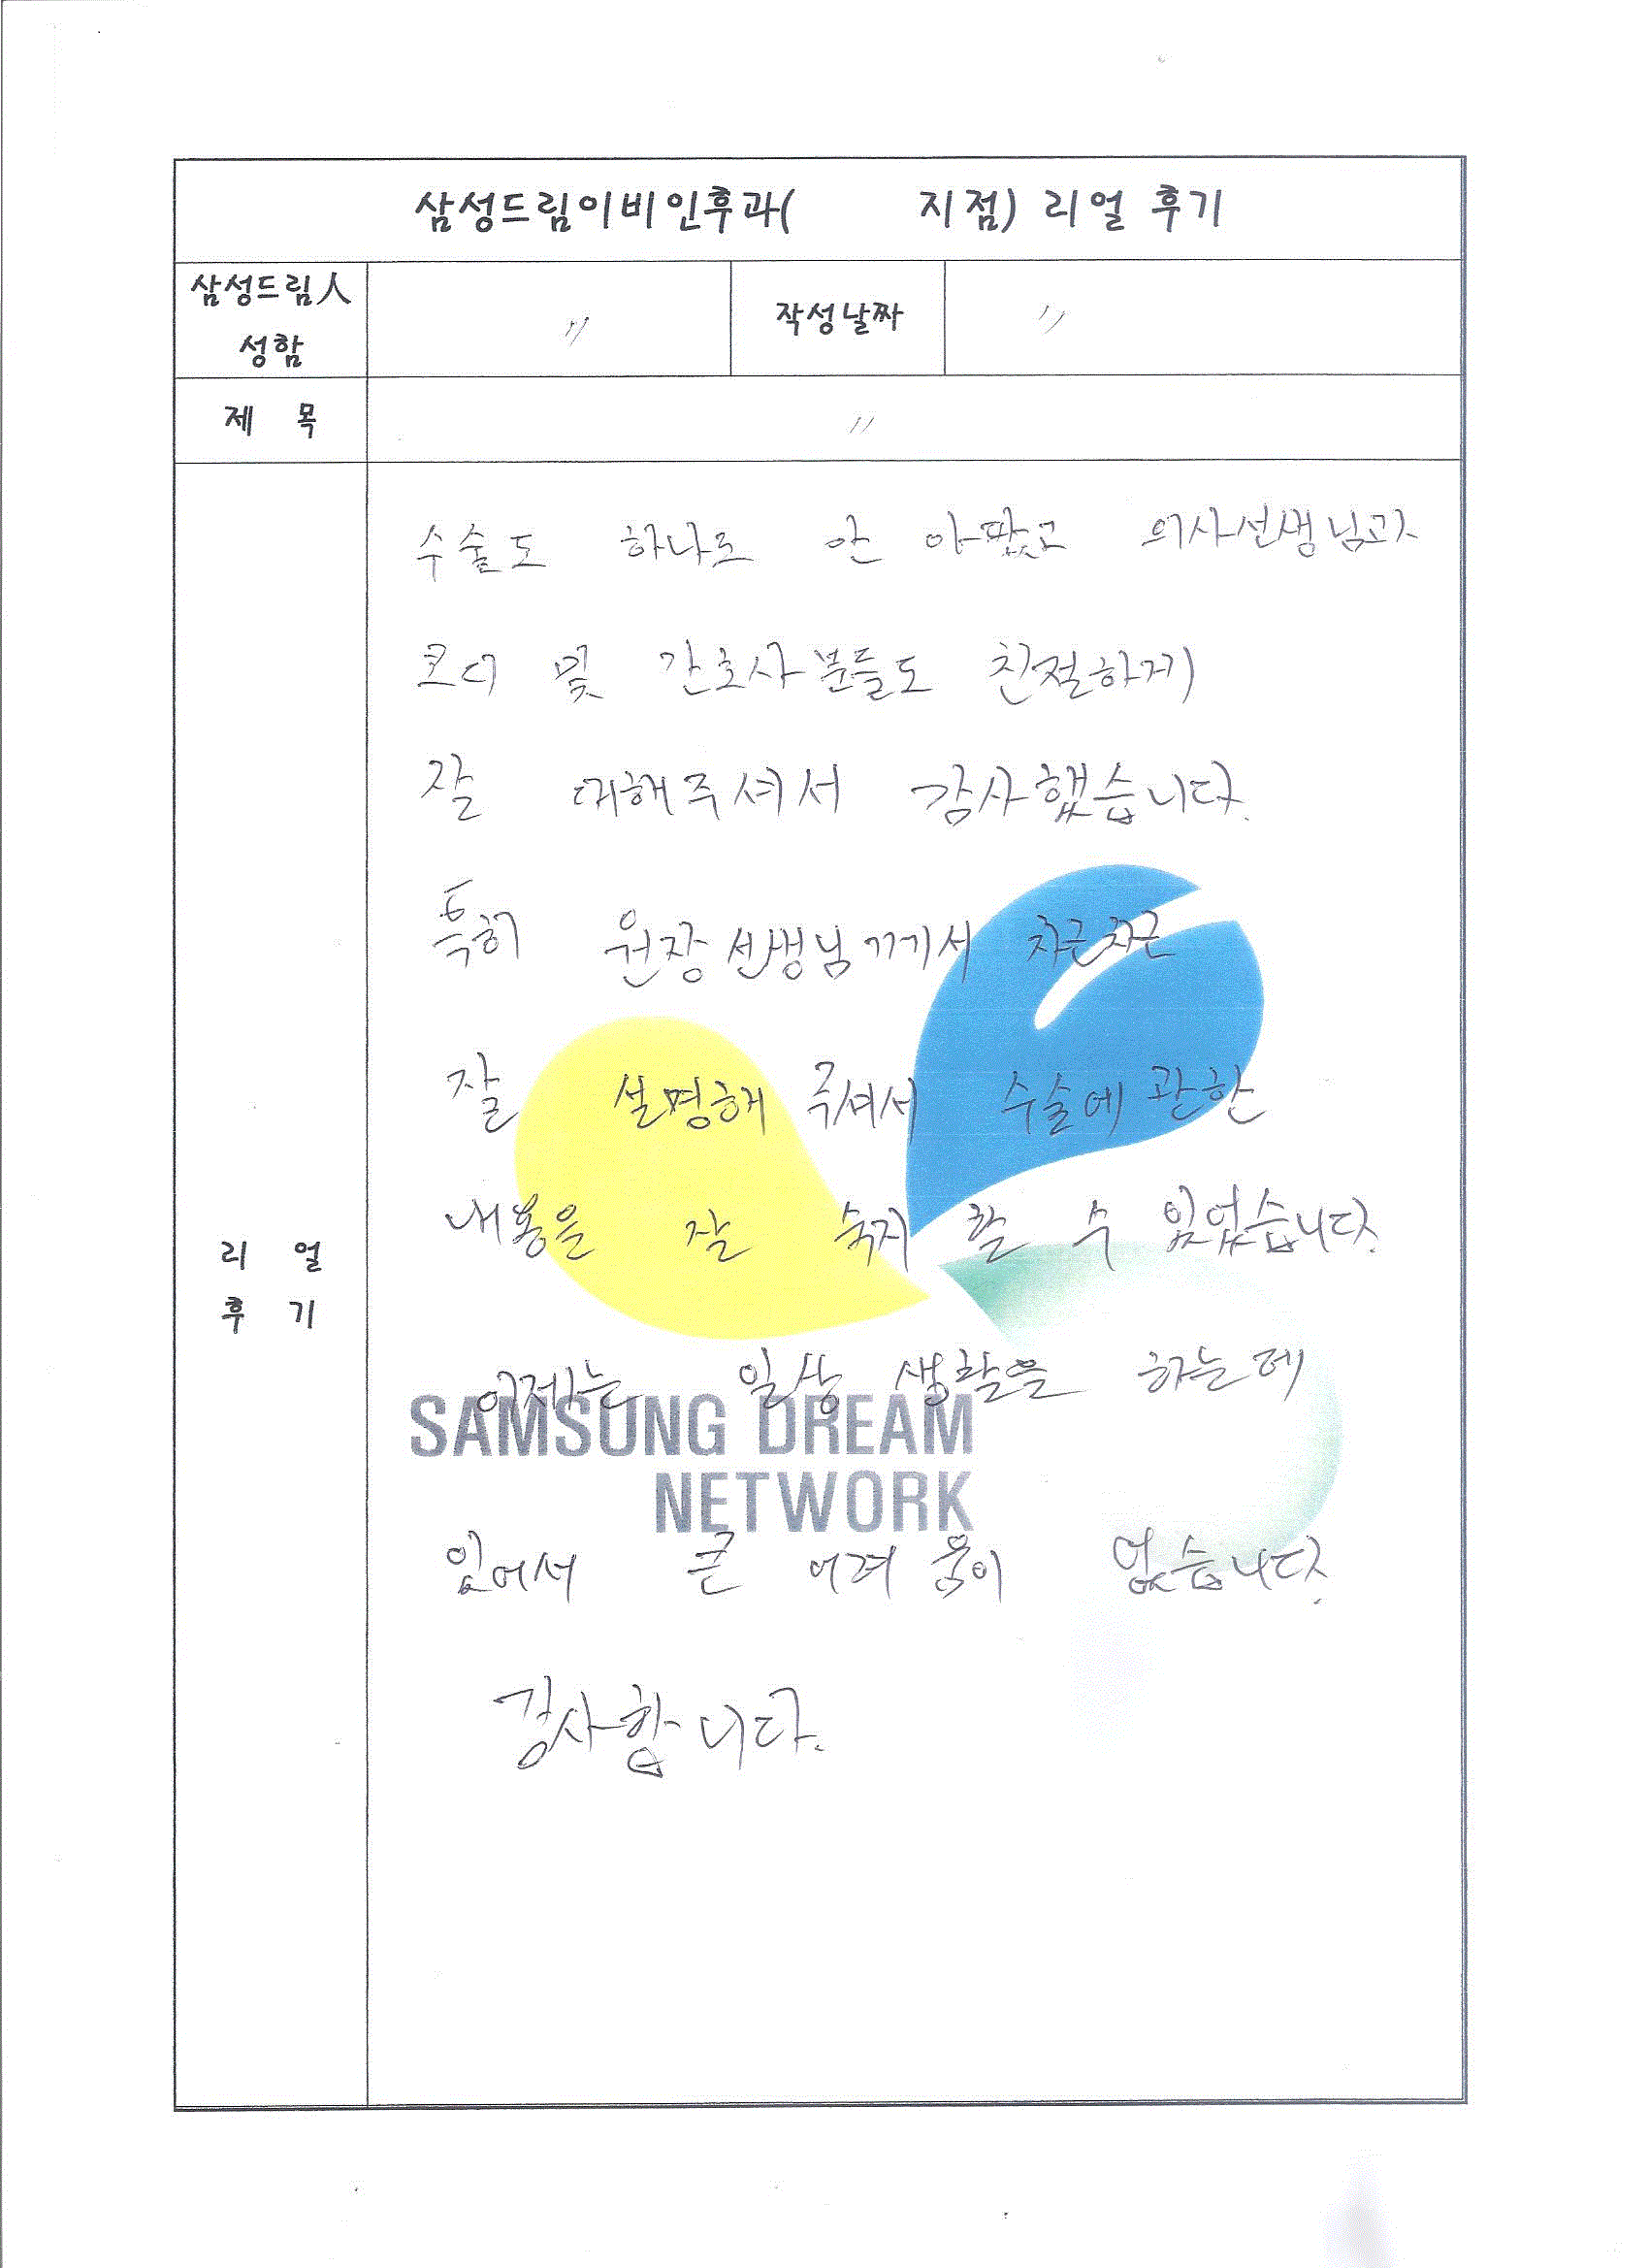 삼성드림이비인후과( 지점) 리얼 후기
삼성드림人
성함
〃
작성날짜
〃
제 목
〃
리 얼
후 기
수술도 하나도 안 아팠고 의사선생님과
코디 및 간호사분들도 친절하게
잘 대해주셔서 감사했습니다.
특히 원장선생님께서 차근차근
잘 설명해 주셔서 수술에 관한
내용을 잘 숙지 할 수 있었습니다.
이제는 일상 생활을 하는데
SAMSUNG DREAM
NETWORK
있어서 큰 어려움이 없습니다.
감사합니다.